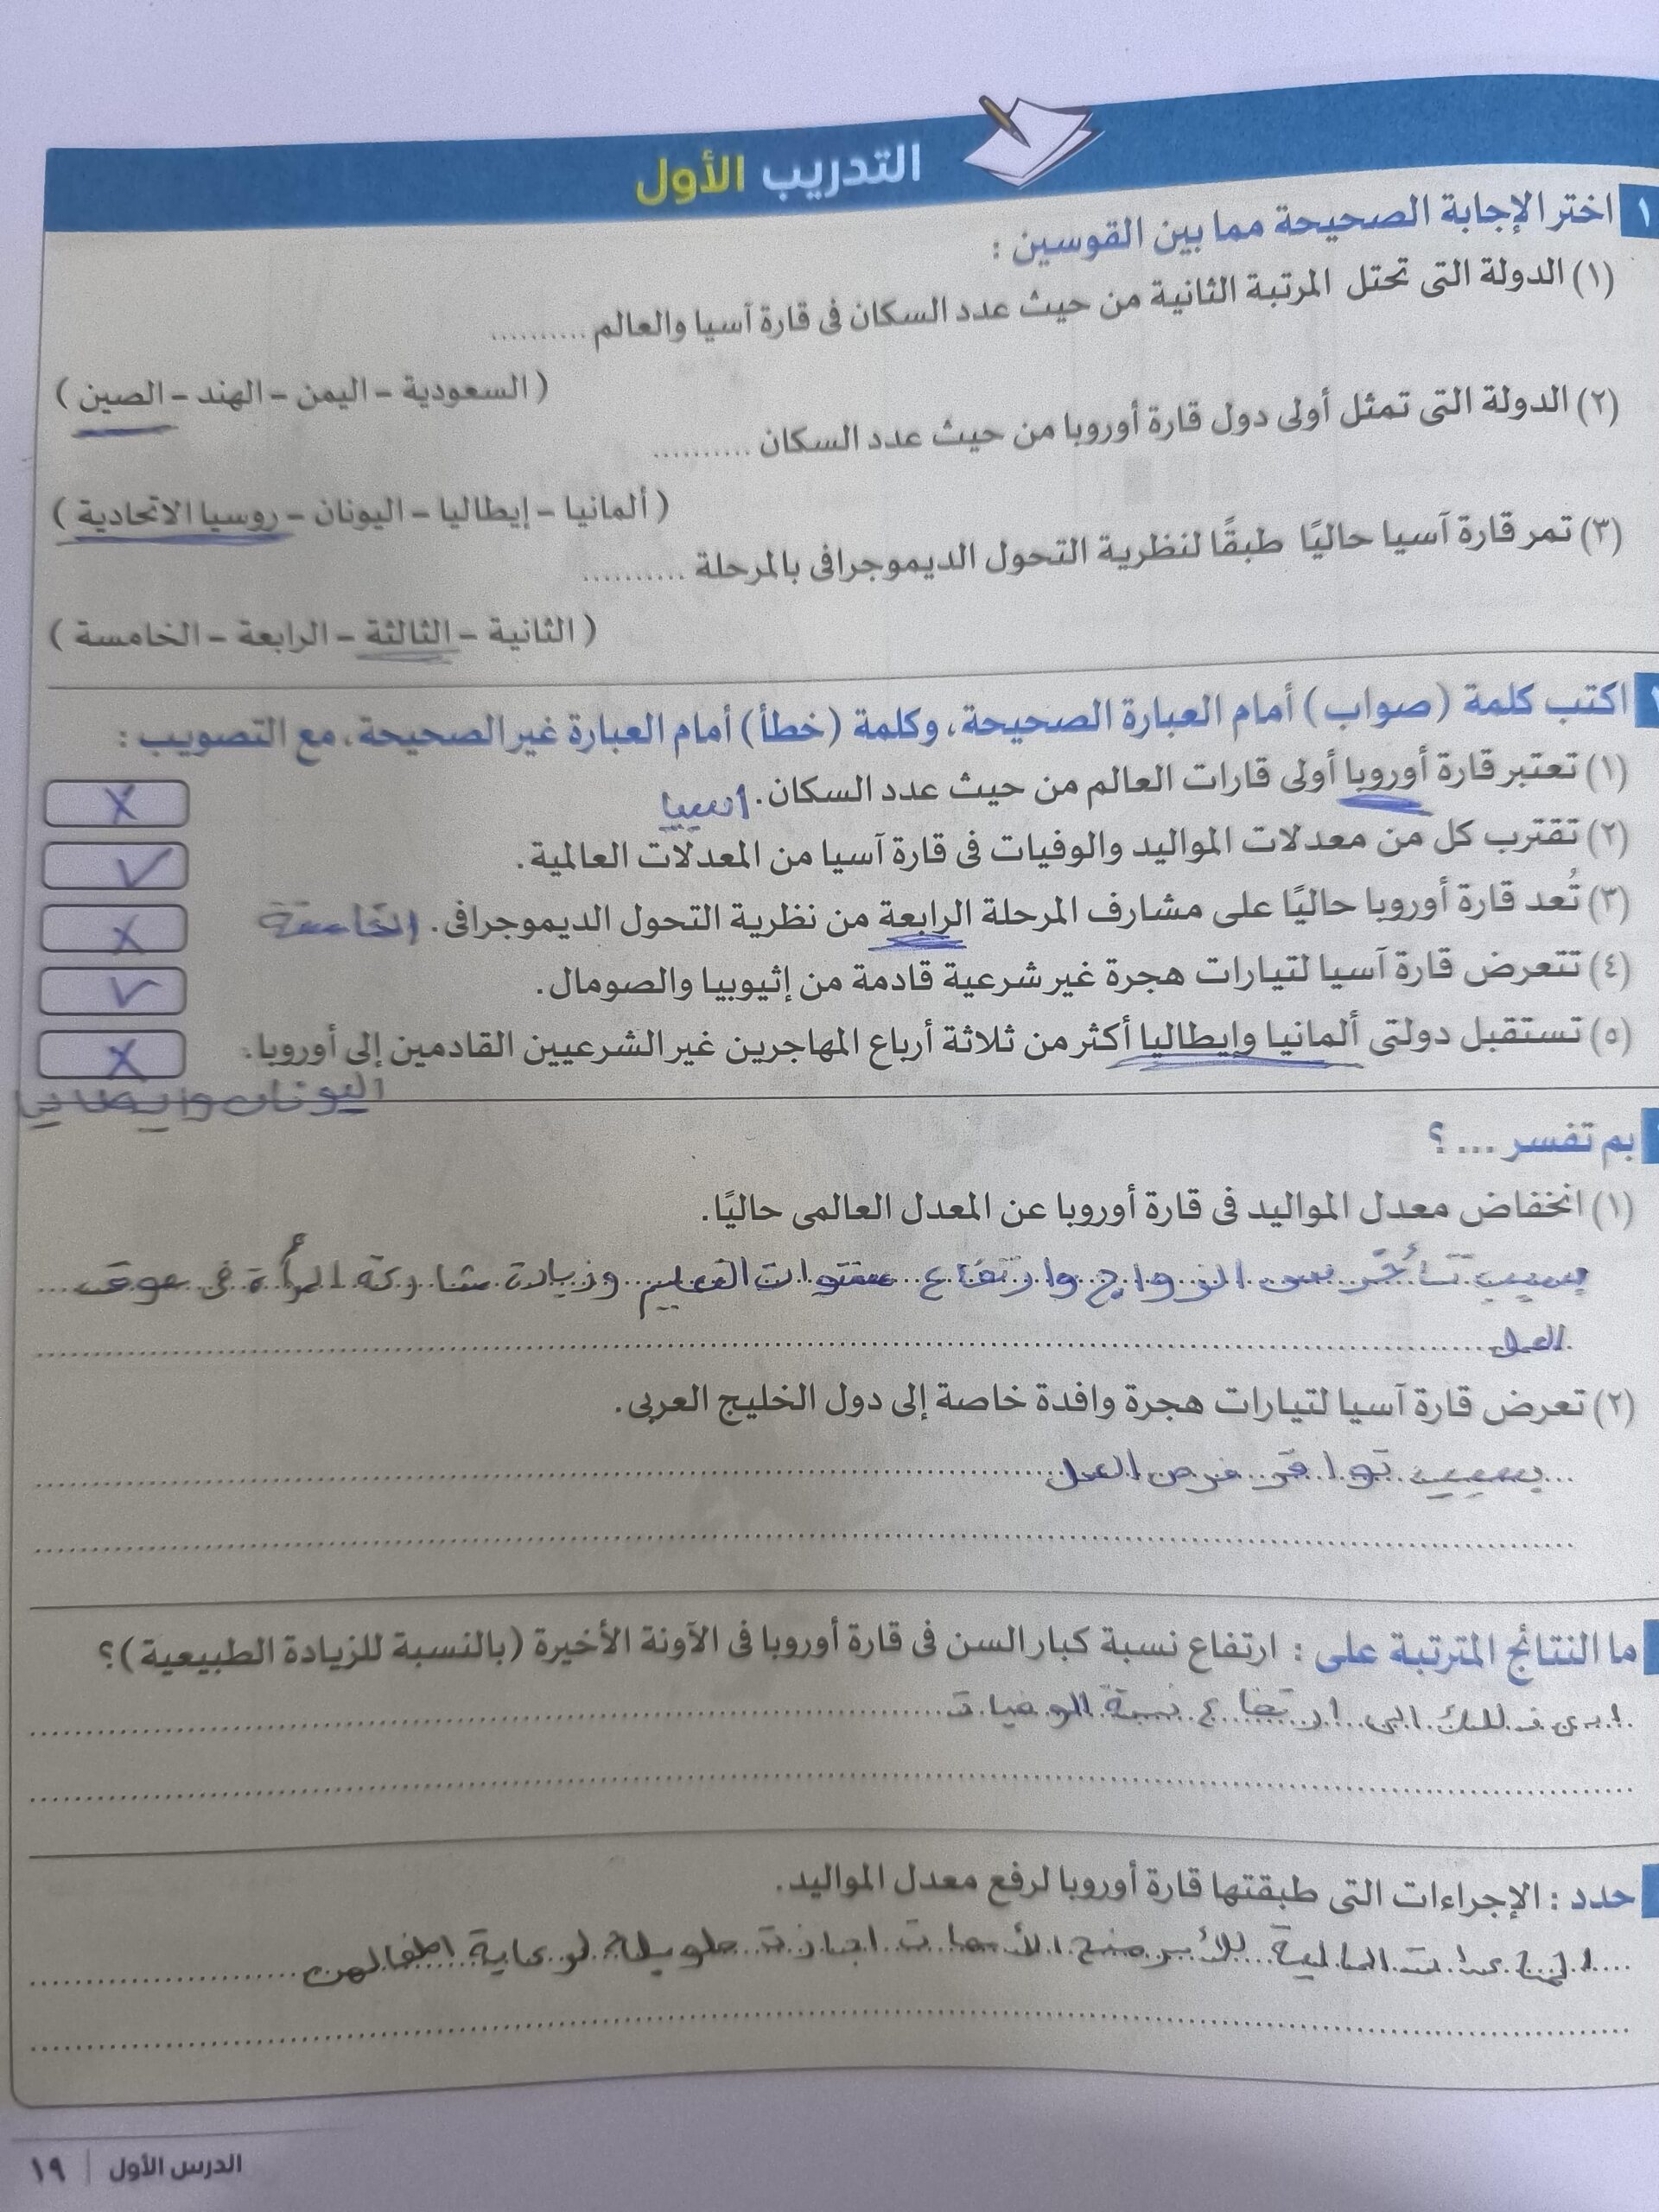 التدريب الأول
١ اختر الإجابة الصحيحة مما بين القوسين :
(١) الدولة التى تحتل المرتبة الثانية من حيث عدد السكان فى قارة آسيا والعالم ..........
( السعودية - اليمن - الهند - الصين )
(٢) الدولة التى تمثل أولى دول قارة أوروبا من حيث عدد السكان ..........
( ألمانيا - إيطاليا - اليونان - روسيا الاتحادية )
(٣) تمر قارة آسيا حاليًا طبقًا لنظرية التحول الديموجرافى بالمرحلة ..........
( الثانية - الثالثة - الرابعة - الخامسة )
اكتب كلمة (صواب) أمام العبارة الصحيحة، وكلمة (خطأ) أمام العبارة غير الصحيحة، مع التصويب :
(١) تعتبر قارة أوروبا أولى قارات العالم من حيث عدد السكان. اسيا X
(٢) تقترب كل من معدلات المواليد والوفيات فى قارة آسيا من المعدلات العالمية. ✓
(٣) تُعد قارة أوروبا حاليًا على مشارف المرحلة الرابعة من نظرية التحول الديموجرافى. الخامسة X
(٤) تتعرض قارة آسيا لتيارات هجرة غير شرعية قادمة من إثيوبيا والصومال. ✓
(٥) تستقبل دولتى ألمانيا وإيطاليا أكثر من ثلاثة أرباع المهاجرين غير الشرعيين القادمين إلى أوروبا. X
اليونان وايطاليا
بم تفسر ... ؟
(١) انخفاض معدل المواليد فى قارة أوروبا عن المعدل العالمى حاليًا.
بسبب تأخر سن الزواج وارتفاع مستوات التعليم وزيادة مشاركة المرأة فى سوق
العمل
(٢) تعرض قارة آسيا لتيارات هجرة وافدة خاصة إلى دول الخليج العربى.
بسبب توافر فرص العمل
ما النتائج المترتبة على : ارتفاع نسبة كبار السن فى قارة أوروبا فى الآونة الأخيرة (بالنسبة للزيادة الطبيعية)؟
ادى ذللك الى ارتفاع نسبة الوفيات
حدد : الإجراءات التى طبقتها قارة أوروبا لرفع معدل المواليد.
المساعدات المالية للأسر منح الأمهات اجازة طويلة لرعاية اطفالهن
الدرس الأول | ١٩